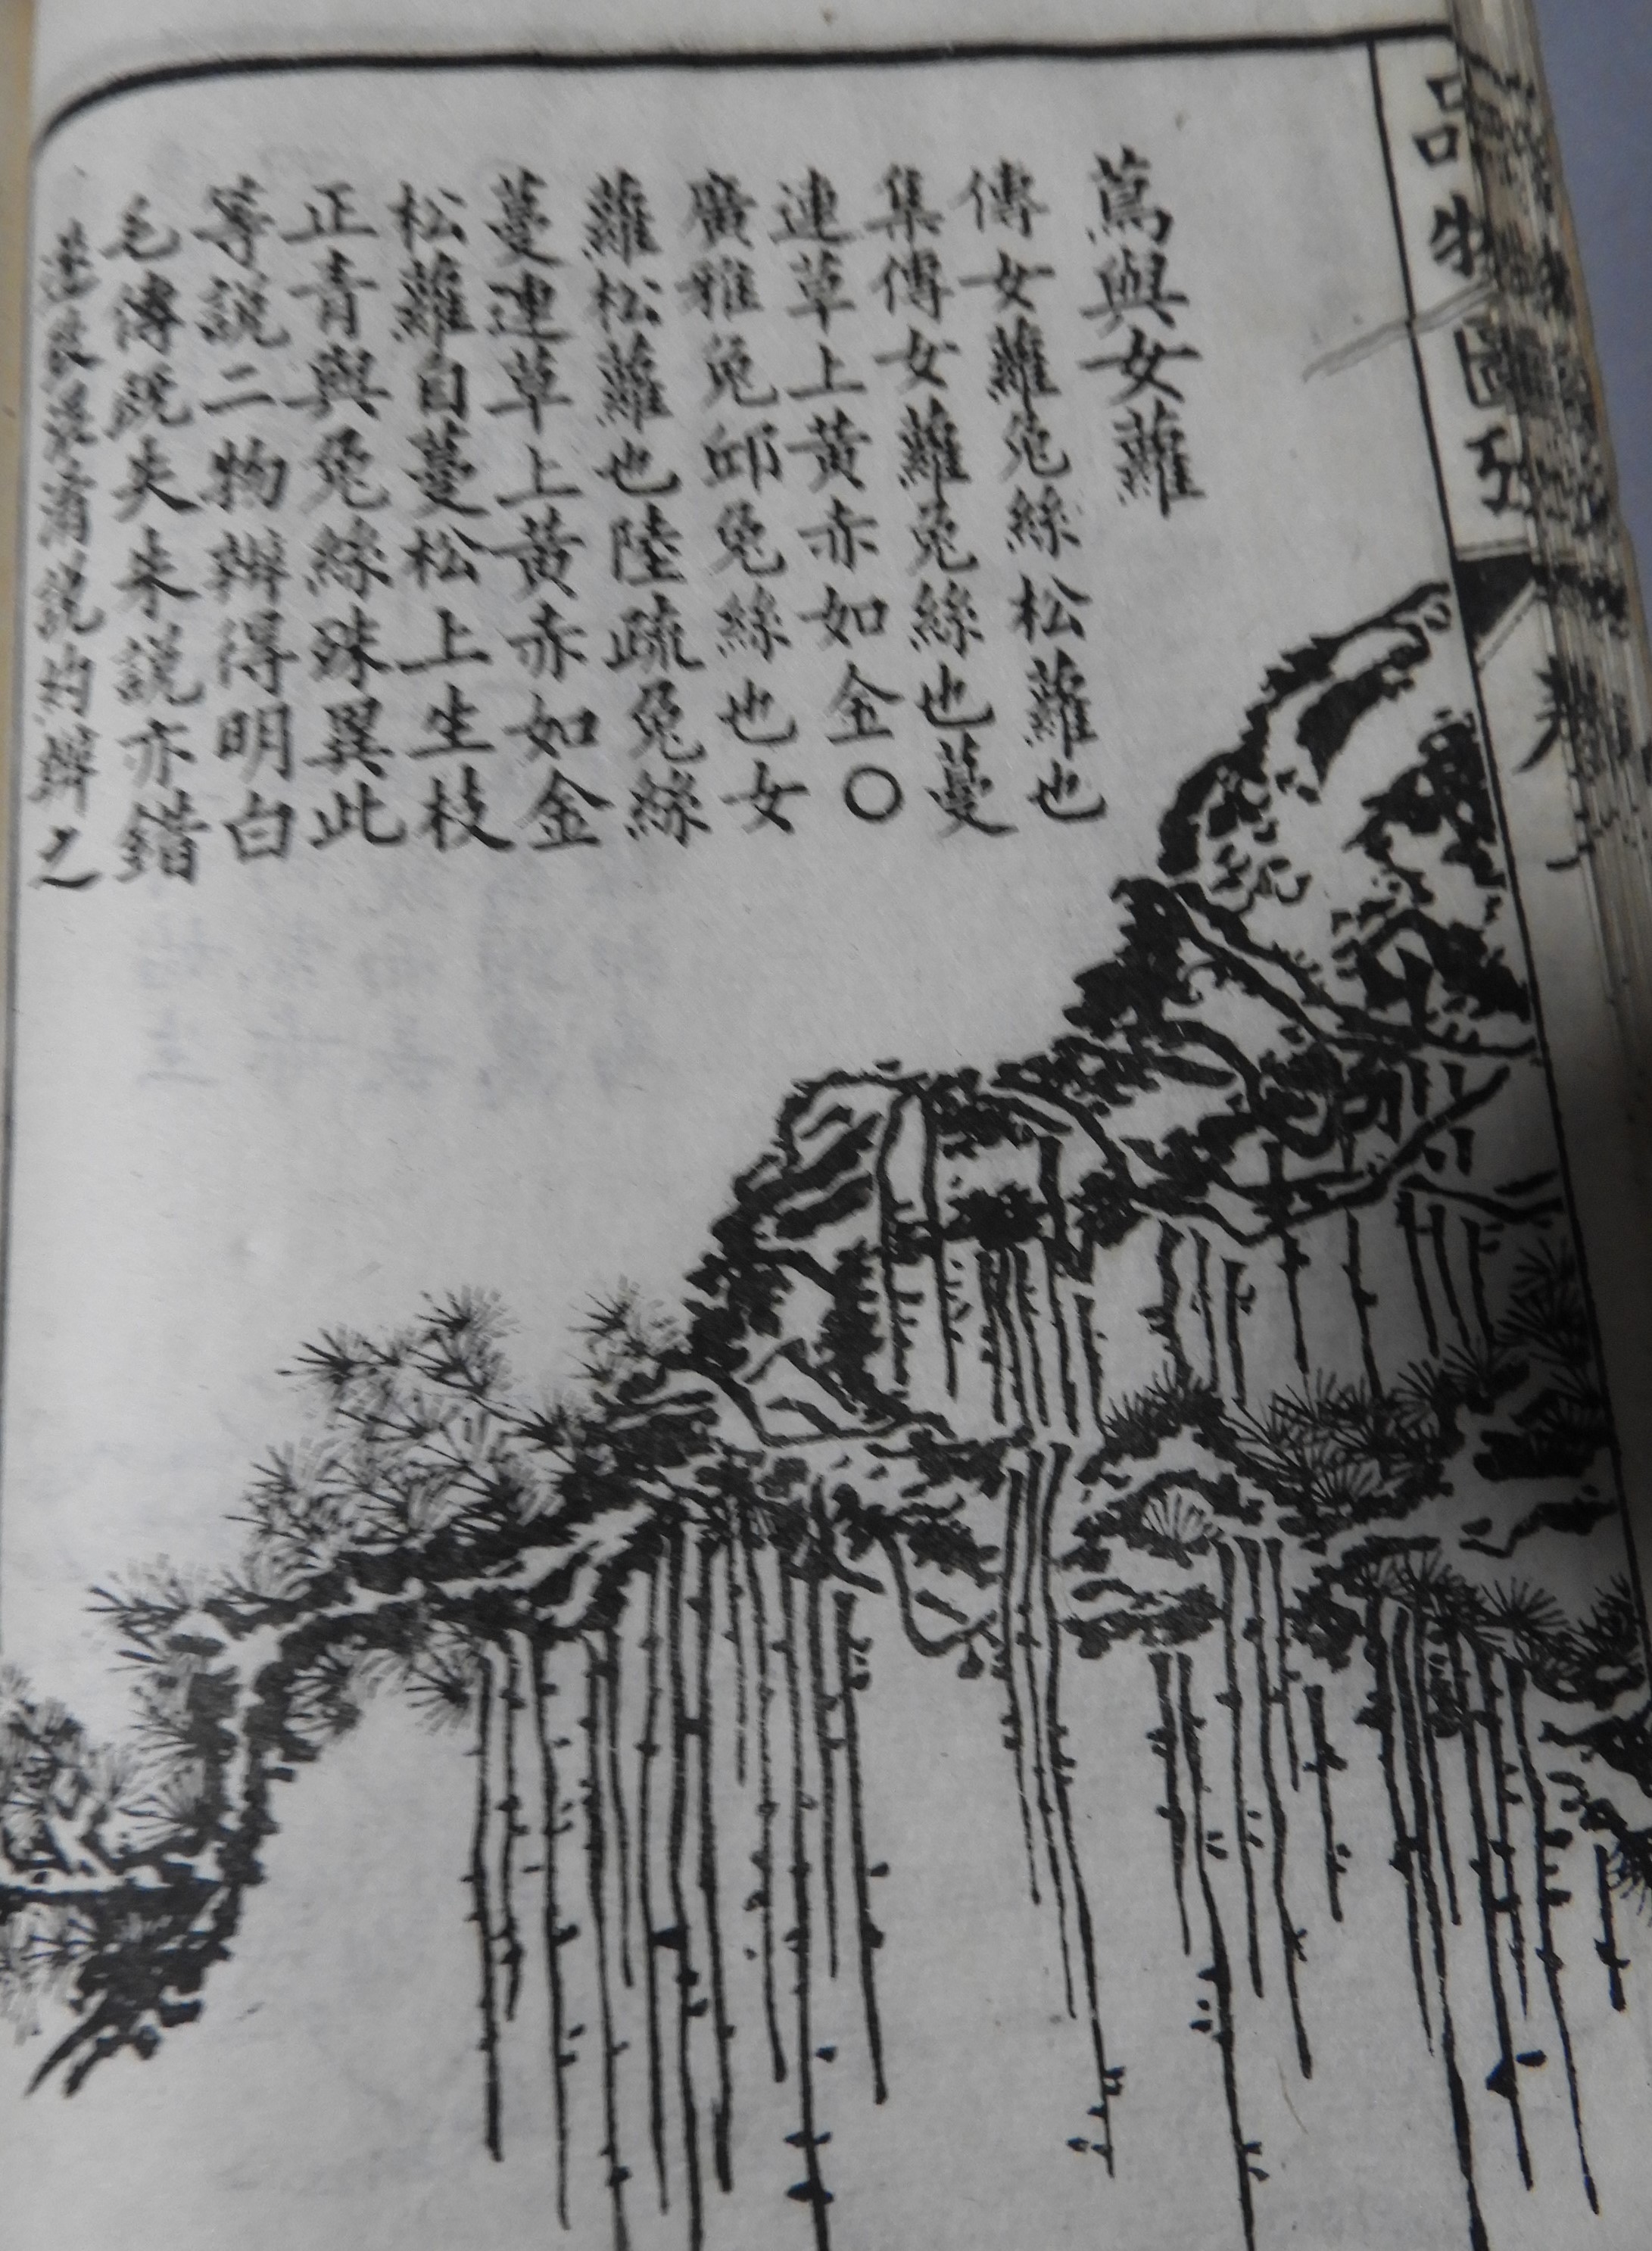 品物圖攷
蔦與女蘿
傳女蘿兔絲松蘿也
集傳女蘿兔絲也蔓
連草上黃赤如金〇
廣雅兔邱兔絲也女
蘿松蘿也陸疏兔絲
蔓連草上黃赤如金
松蘿自蔓松上生枝
正青與兔絲殊異此
等說二物辨得明白
毛傳既失朱說亦錯
說均辨之